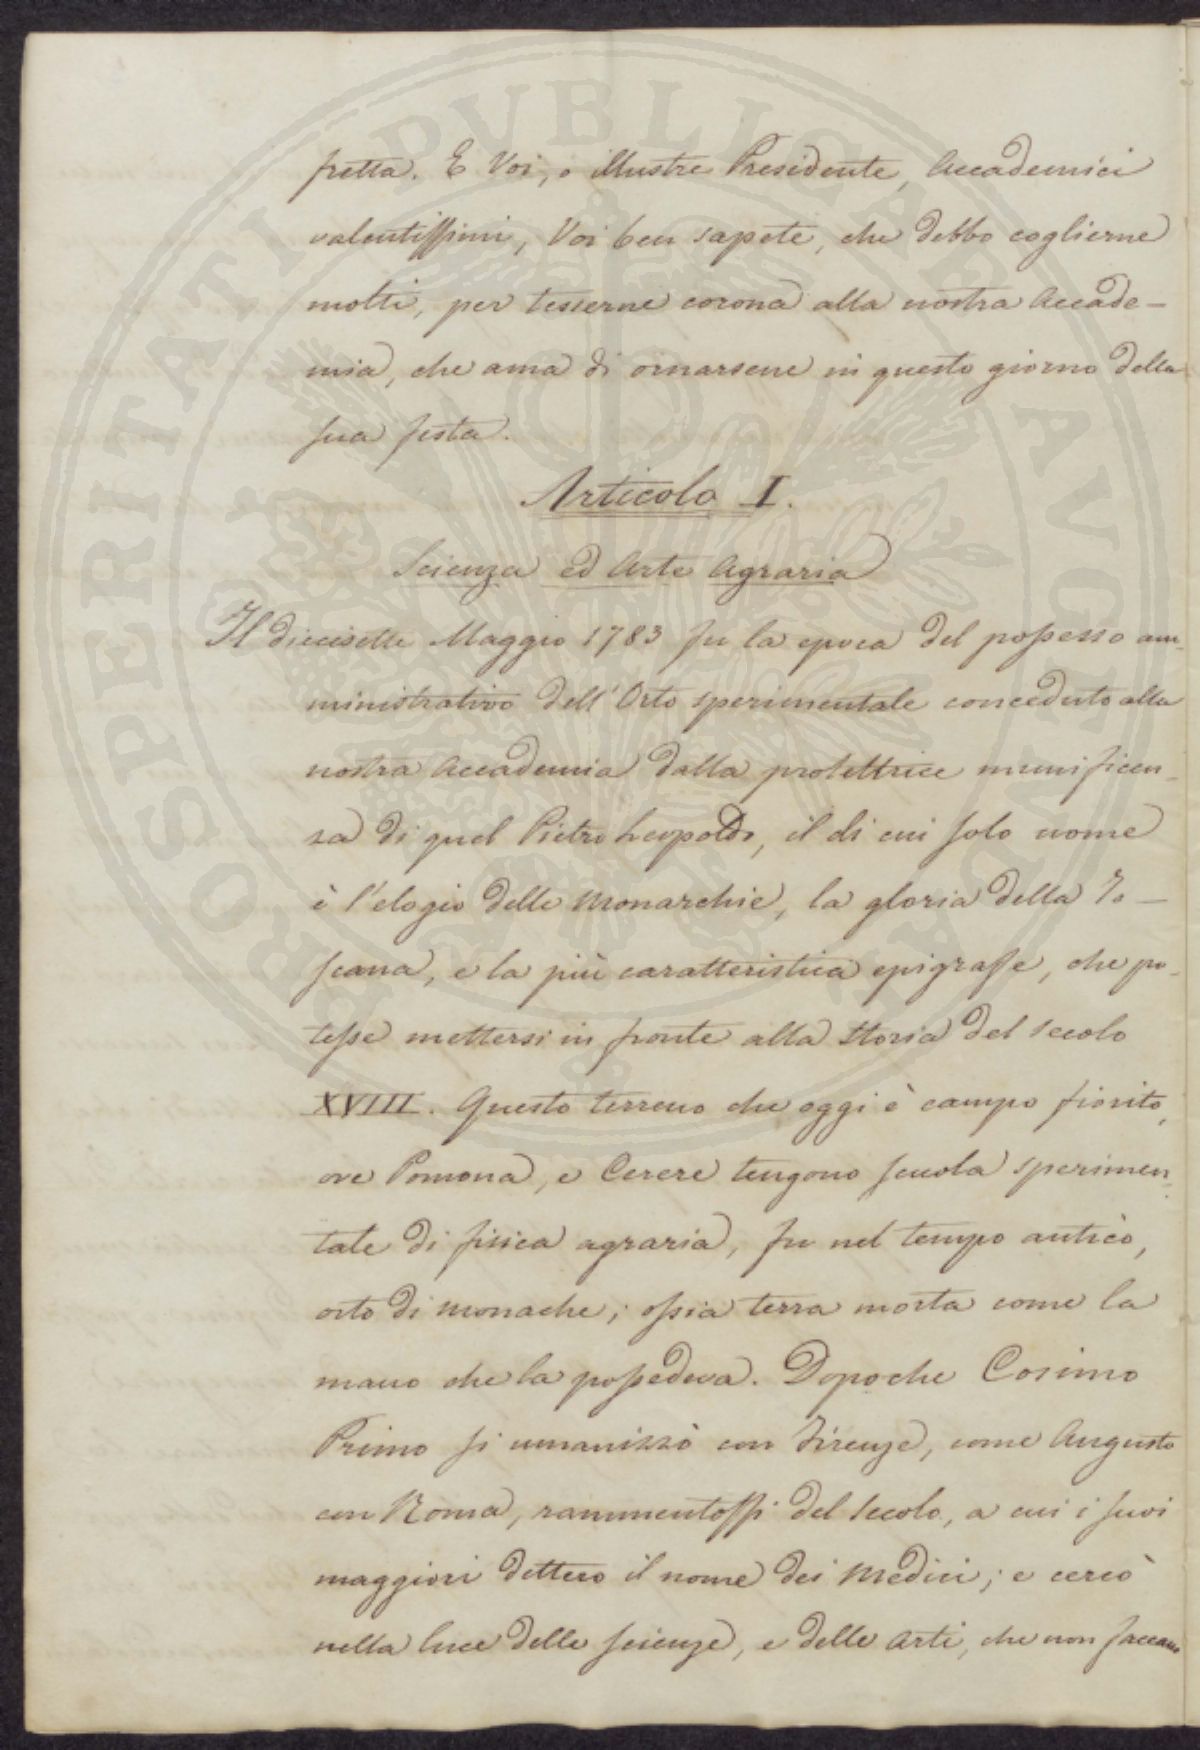 fretta. E Voi, o illustre Presidente, Accademici
valentissimi, Voi ben sapete, che debbo coglierne
molti, per tesserne corona alla nostra Accade-
mia, che ama di ornarsene in questo giorno della
sua festa.
Articolo I.
Scienza ed Arte Agraria
Il diecisette Maggio 1783 fu la epoca del possesso am-
ministrativo dell'Orto sperimentale conceduto alla
nostra Accademia dalla protettrice munificen-
za di quel Pietro Leopoldo, il di cui solo nome
è l'elogio delle Monarchie, la gloria della To-
scana, e la più caratteristica epigrafe, che po-
tesse mettersi in fronte alla Storia del Secolo
XVIII. Questo terreno che oggi è campo fiorito,
ove Pomona, e Cerere tengono scuola sperimen-
tale di fisica agraria, fu nel tempo antico,
orto di monache; ossia terra morta come la
mano che la possedeva. Dopoche Cosimo
Primo si umanizzò con Firenze, come Augusto
con Roma, rammentossi del Secolo, a cui i suoi
maggiori dettero il nome dei Medici; e cercò
nella luce delle scienze, e delle arti, che non faccano
PROSPERITATI PUBLICAE AUGENDAE